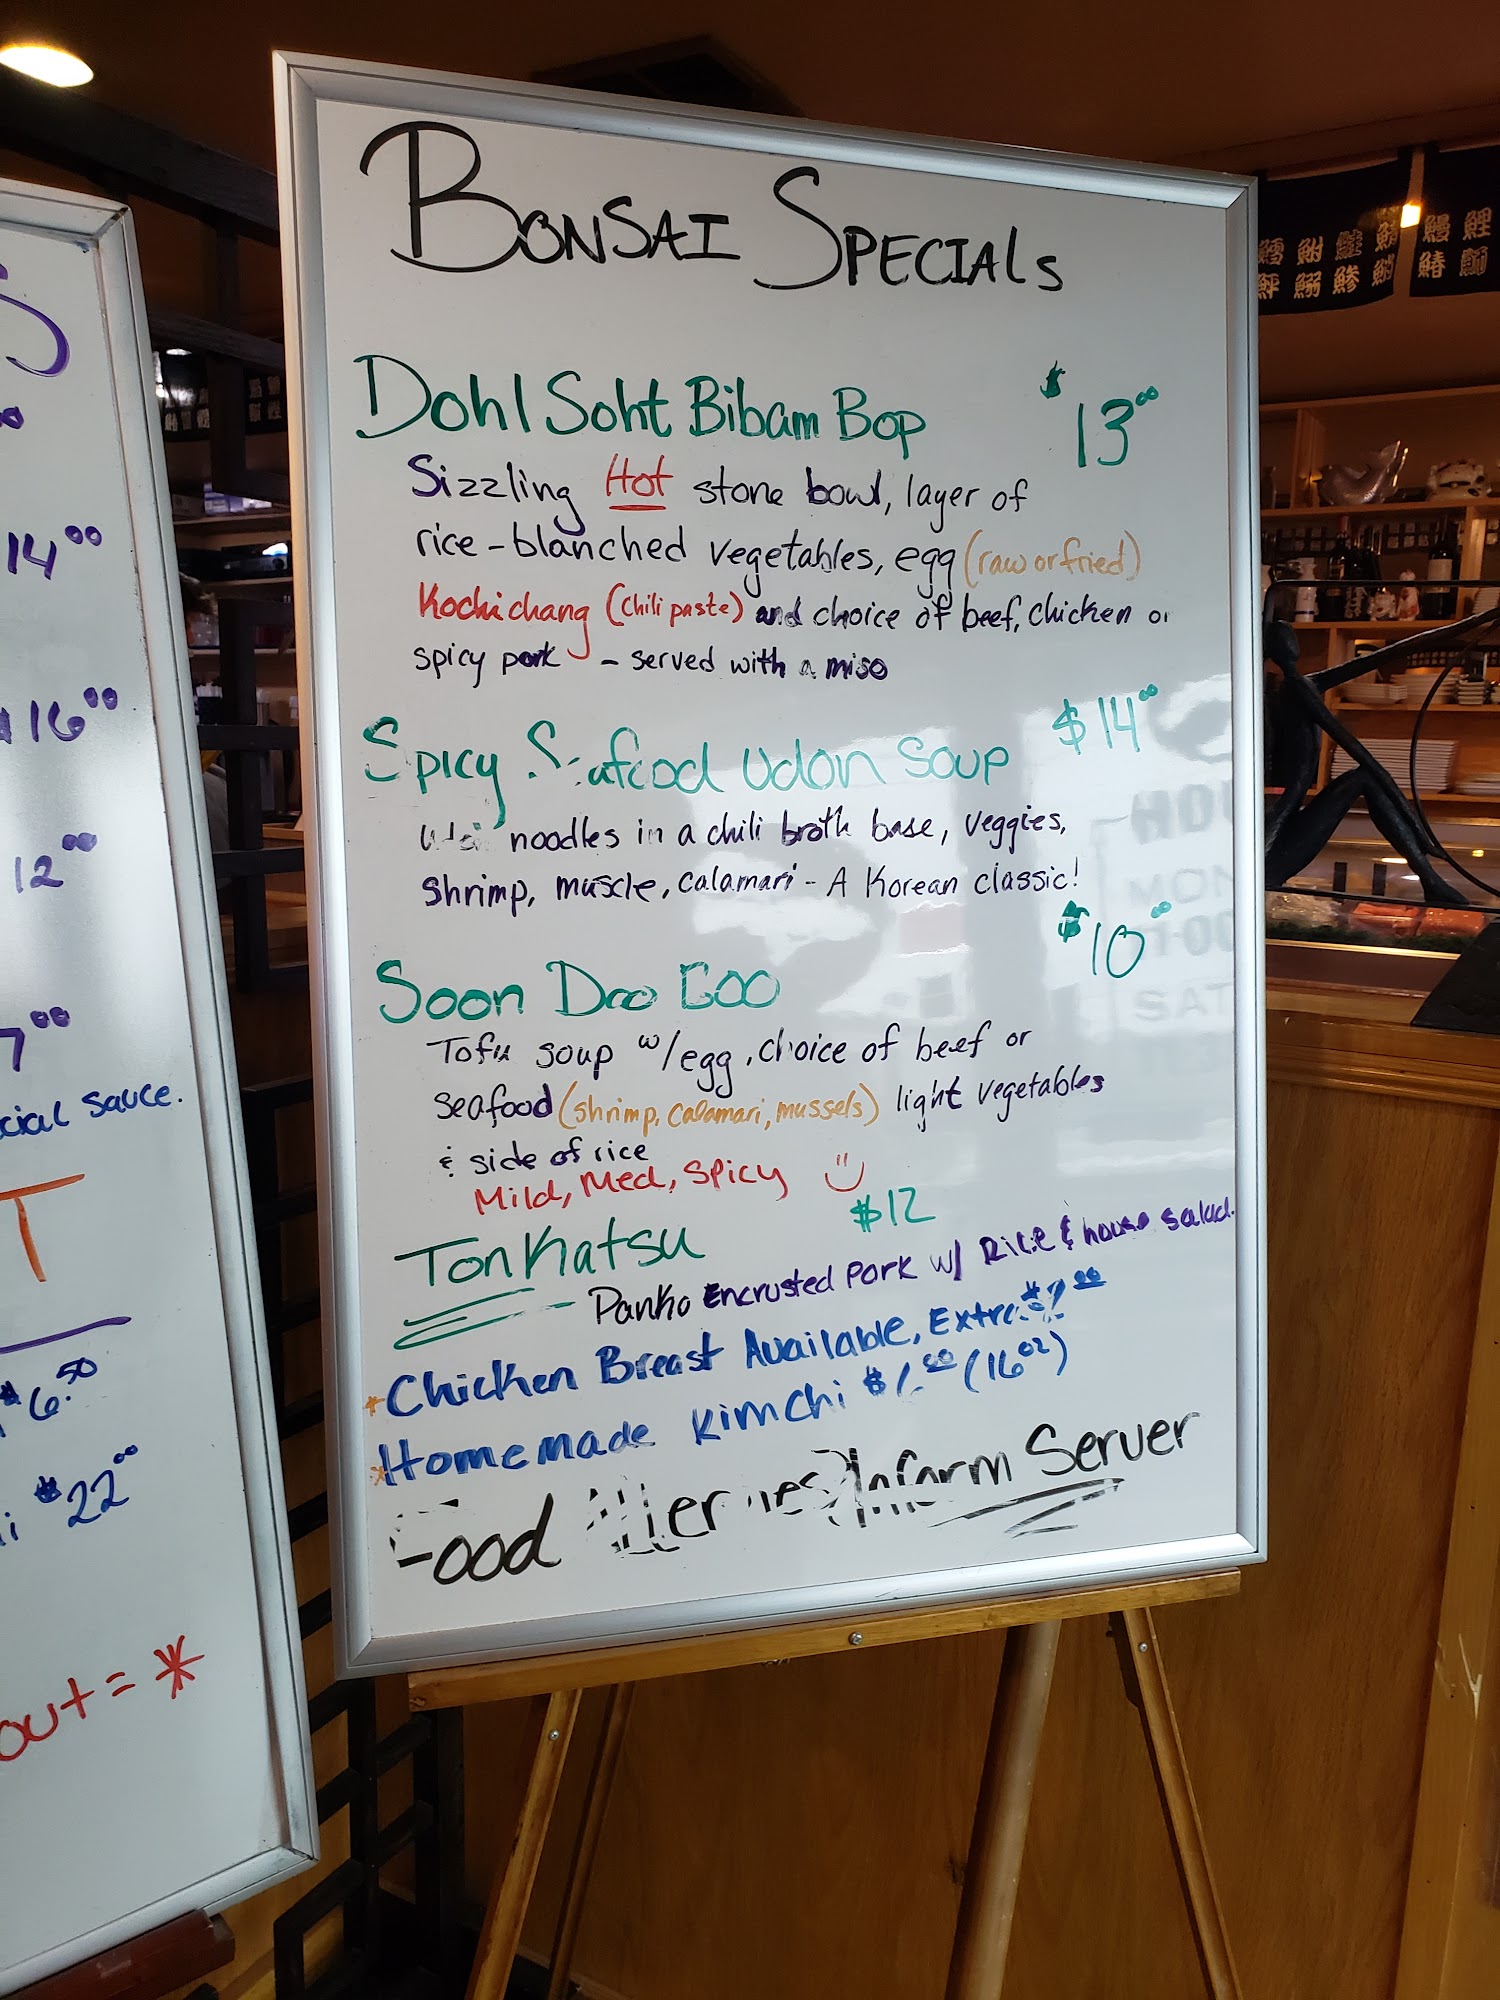 BONSAI SPECIALS
Dohl Soht Bibam Bop $13.00
Sizzling Hot stone bowl, layer of
rice-blanched vegetables, egg (raw or fried)
Kochichang (chili paste) and choice of beef, chicken or
spicy pork - served with a miso
Spicy Seafood Udon Soup $14.00
noodles in a chili broth base, veggies,
shrimp, muscle, calamari - A Korean classic!
$10.00
Soon Doo Goo
Tofu soup w/egg, choice of beef or
seafood (shrimp, calamari, mussels) light vegetables
& side of rice
Mild, Med, Spicy
$12
Tonkatsu
Panko Encrusted Pork w/ Rice & house salad.
*Chicken Breast Available, Extra
*Homemade Kimchi (16oz)
Food Allergies? Inform Server
14.00
$16.00
12.00
7.00
sauce.
T
$6.50
$22.00
out = *